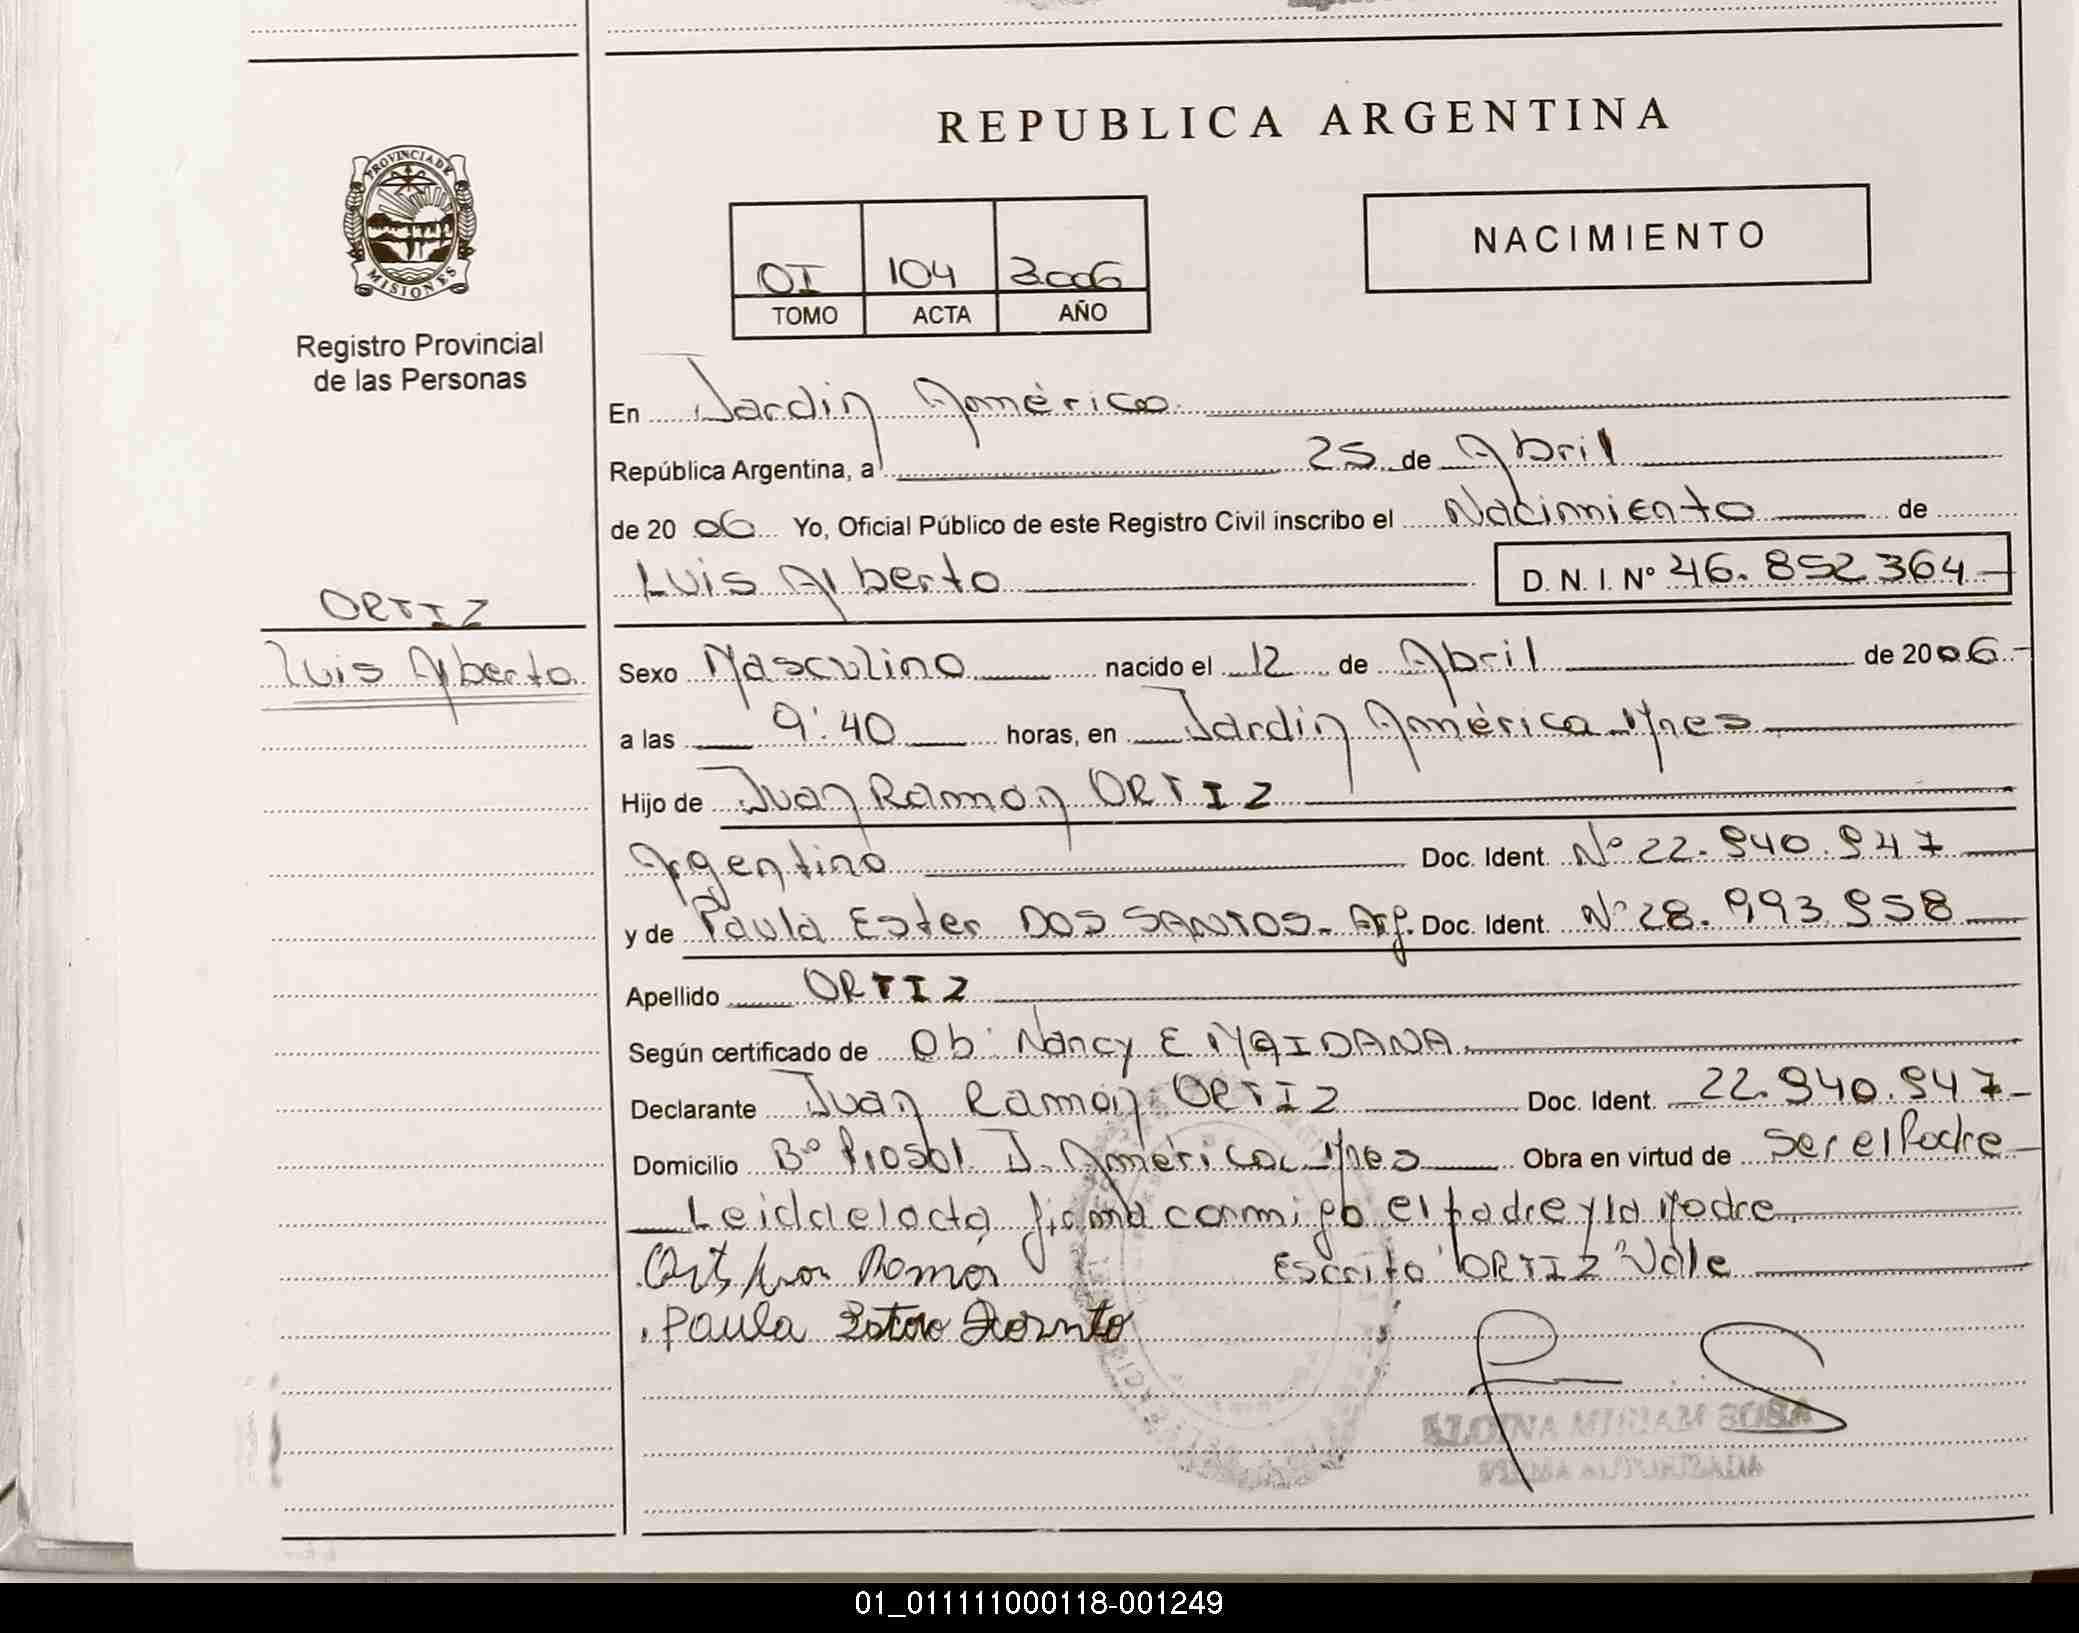 REPUBLICA ARGENTINA
PROVINCIA DE
MISIONES
Registro Provincial
de las Personas
NACIMIENTO
OI 104 2.006
TOMO ACTA AÑO
En Jardin América
República Argentina, a 25 de Abril
de 20 06 Yo, Oficial Público de este Registro Civil inscribo el Nacimiento de
Luis Alberto D. N. I. Nº 46.852364
ORTIZ
Luis Alberto
Sexo Masculino nacido el 12 de Abril de 2006
a las 9:40 horas, en Jardin América Mnes
Hijo de Juan Ramon ORTIZ
Argentino Doc. Ident. Nº 22.940.947
y de Paula Ester DOS SANTOS - Arg. Doc. Ident. Nº 28.993.958
Apellido ORTIZ
Según certificado de Ob. Nancy E MAIDANA.
Declarante Juan Ramon ORTIZ Doc. Ident. 22.940.947
Domicilio Bº J. América Mnes Obra en virtud de ser el Padre
Leida el acta, firma conmigo el padre y la Madre.
Ramon Escrito "ORTIZ" Vale
Paula
01_011111000118-001249